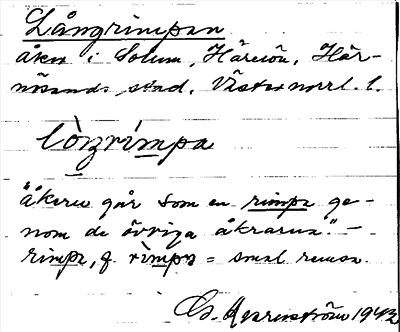 Långrimpan
åker i Solum, Härnön, Här-
nösands stad, Västernorrl. l.
lòŋrímpa
"åkern går som en rimpa ge-
nom de övriga åkrarna." –
rimpa, f. rìmpa = smal remsa.
1943